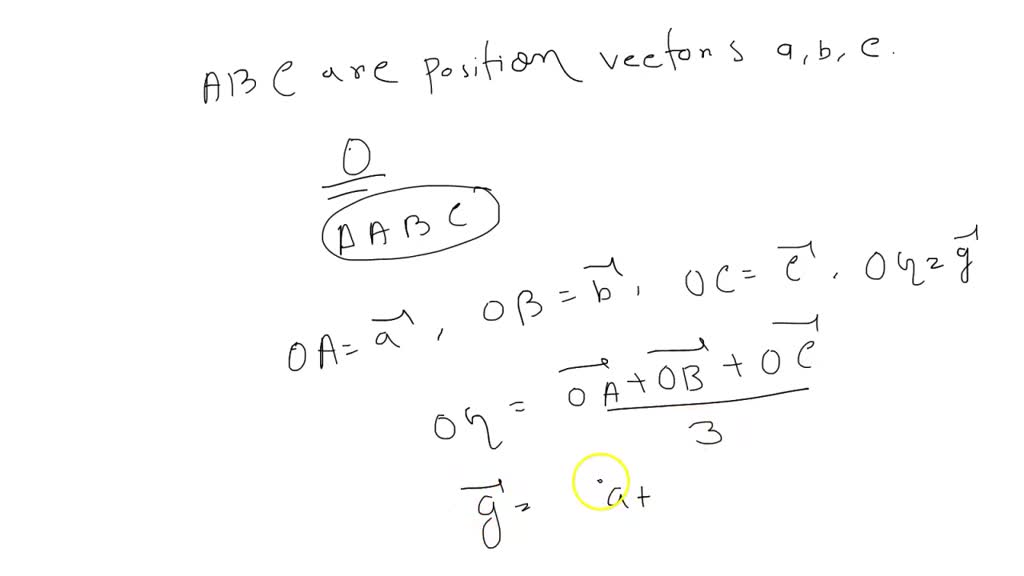 ABC are position vectors a, b, c.
O
△ABC
OA = a⃗, OB = b⃗, OC = c⃗, OG = g⃗
OG = (OA⃗ + OB⃗ + OC⃗) / 3
g⃗ = a +